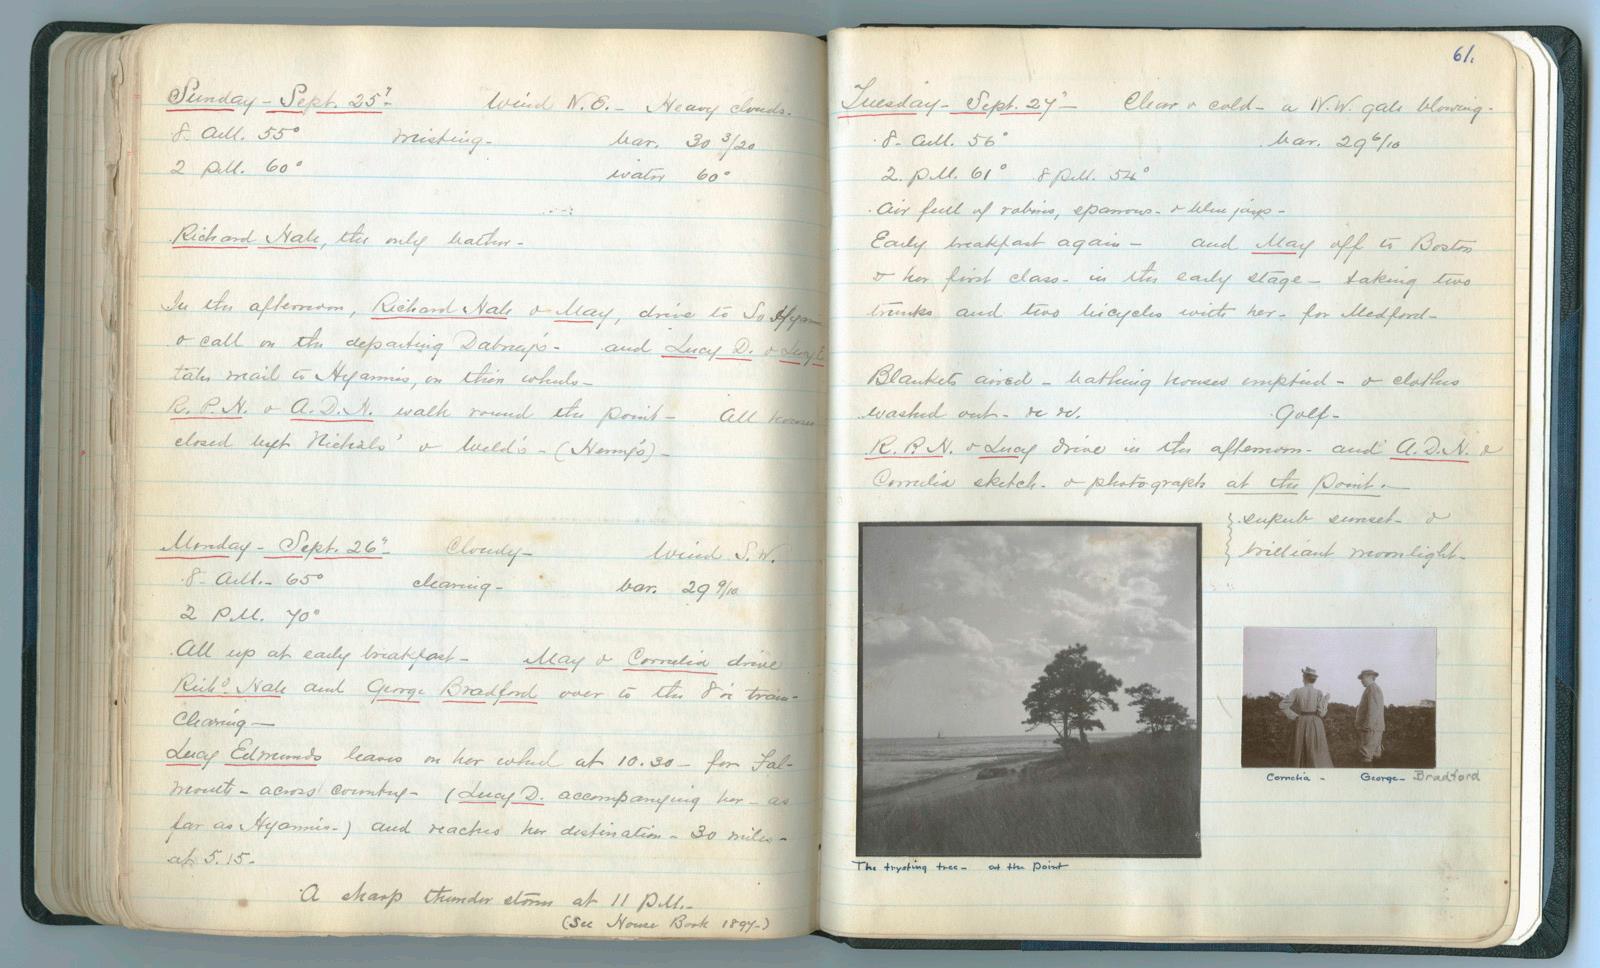 Sunday - Sept. 25" - Wind N.E. - Heavy clouds.
8. A.M. 55° misting - bar. 30 3/20
2 P.M. 60° water 60°
Richard Hale, the only bather -
In the afternoon, Richard Hale & May, drive to So Hyannis
& call on the departing Dabney's - and Lucy D. & Lucy E.
take mail to Hyannis, on their wheels -
R.P.N. & A.D.N. walk round the point - All houses
closed but Nichols' & Weld's - (Henry's) -
Monday - Sept. 26" - Cloudy - Wind S.W.
8 - A.M. - 65° clearing - bar. 29 9/10
2 P.M. 70°
All up at early breakfast - May & Cornelia drive
Richd Hale and George Bradford over to the 8 o'c train -
Clearing -
Lucy Edmunds leaves on her wheel at 10.30 - for Fal-
mouth - across country - (Lucy D. accompanying her - as
far as Hyannis -) and reaches her destination - 30 miles -
at 5.15 -
A sharp thunder storm at 11 P.M. -
(See House Book 1897 -)
61.
Tuesday - Sept. 27" - Clear & cold - a N.W. gale blowing -
8 - A.M. 56° bar. 29 6/10
2. P.M. 61° 8 P.M. 54°
Air full of robins, sparrows - & blue jays -
Early breakfast again - and May off to Boston
& her first class - in the early stage - taking two
trunks and two bicycles with her - for Medford -
Blankets aired - bathing houses emptied - & clothes
washed out - &c &c. Golf -
R.P.N. & Lucy drive in the afternoon - and A.D.N. &
Cornelia sketch - & photograph at the Point. -
superb sunset - &
brilliant moonlight -
Cornelia - George - Bradford
The trysting tree - at the Point